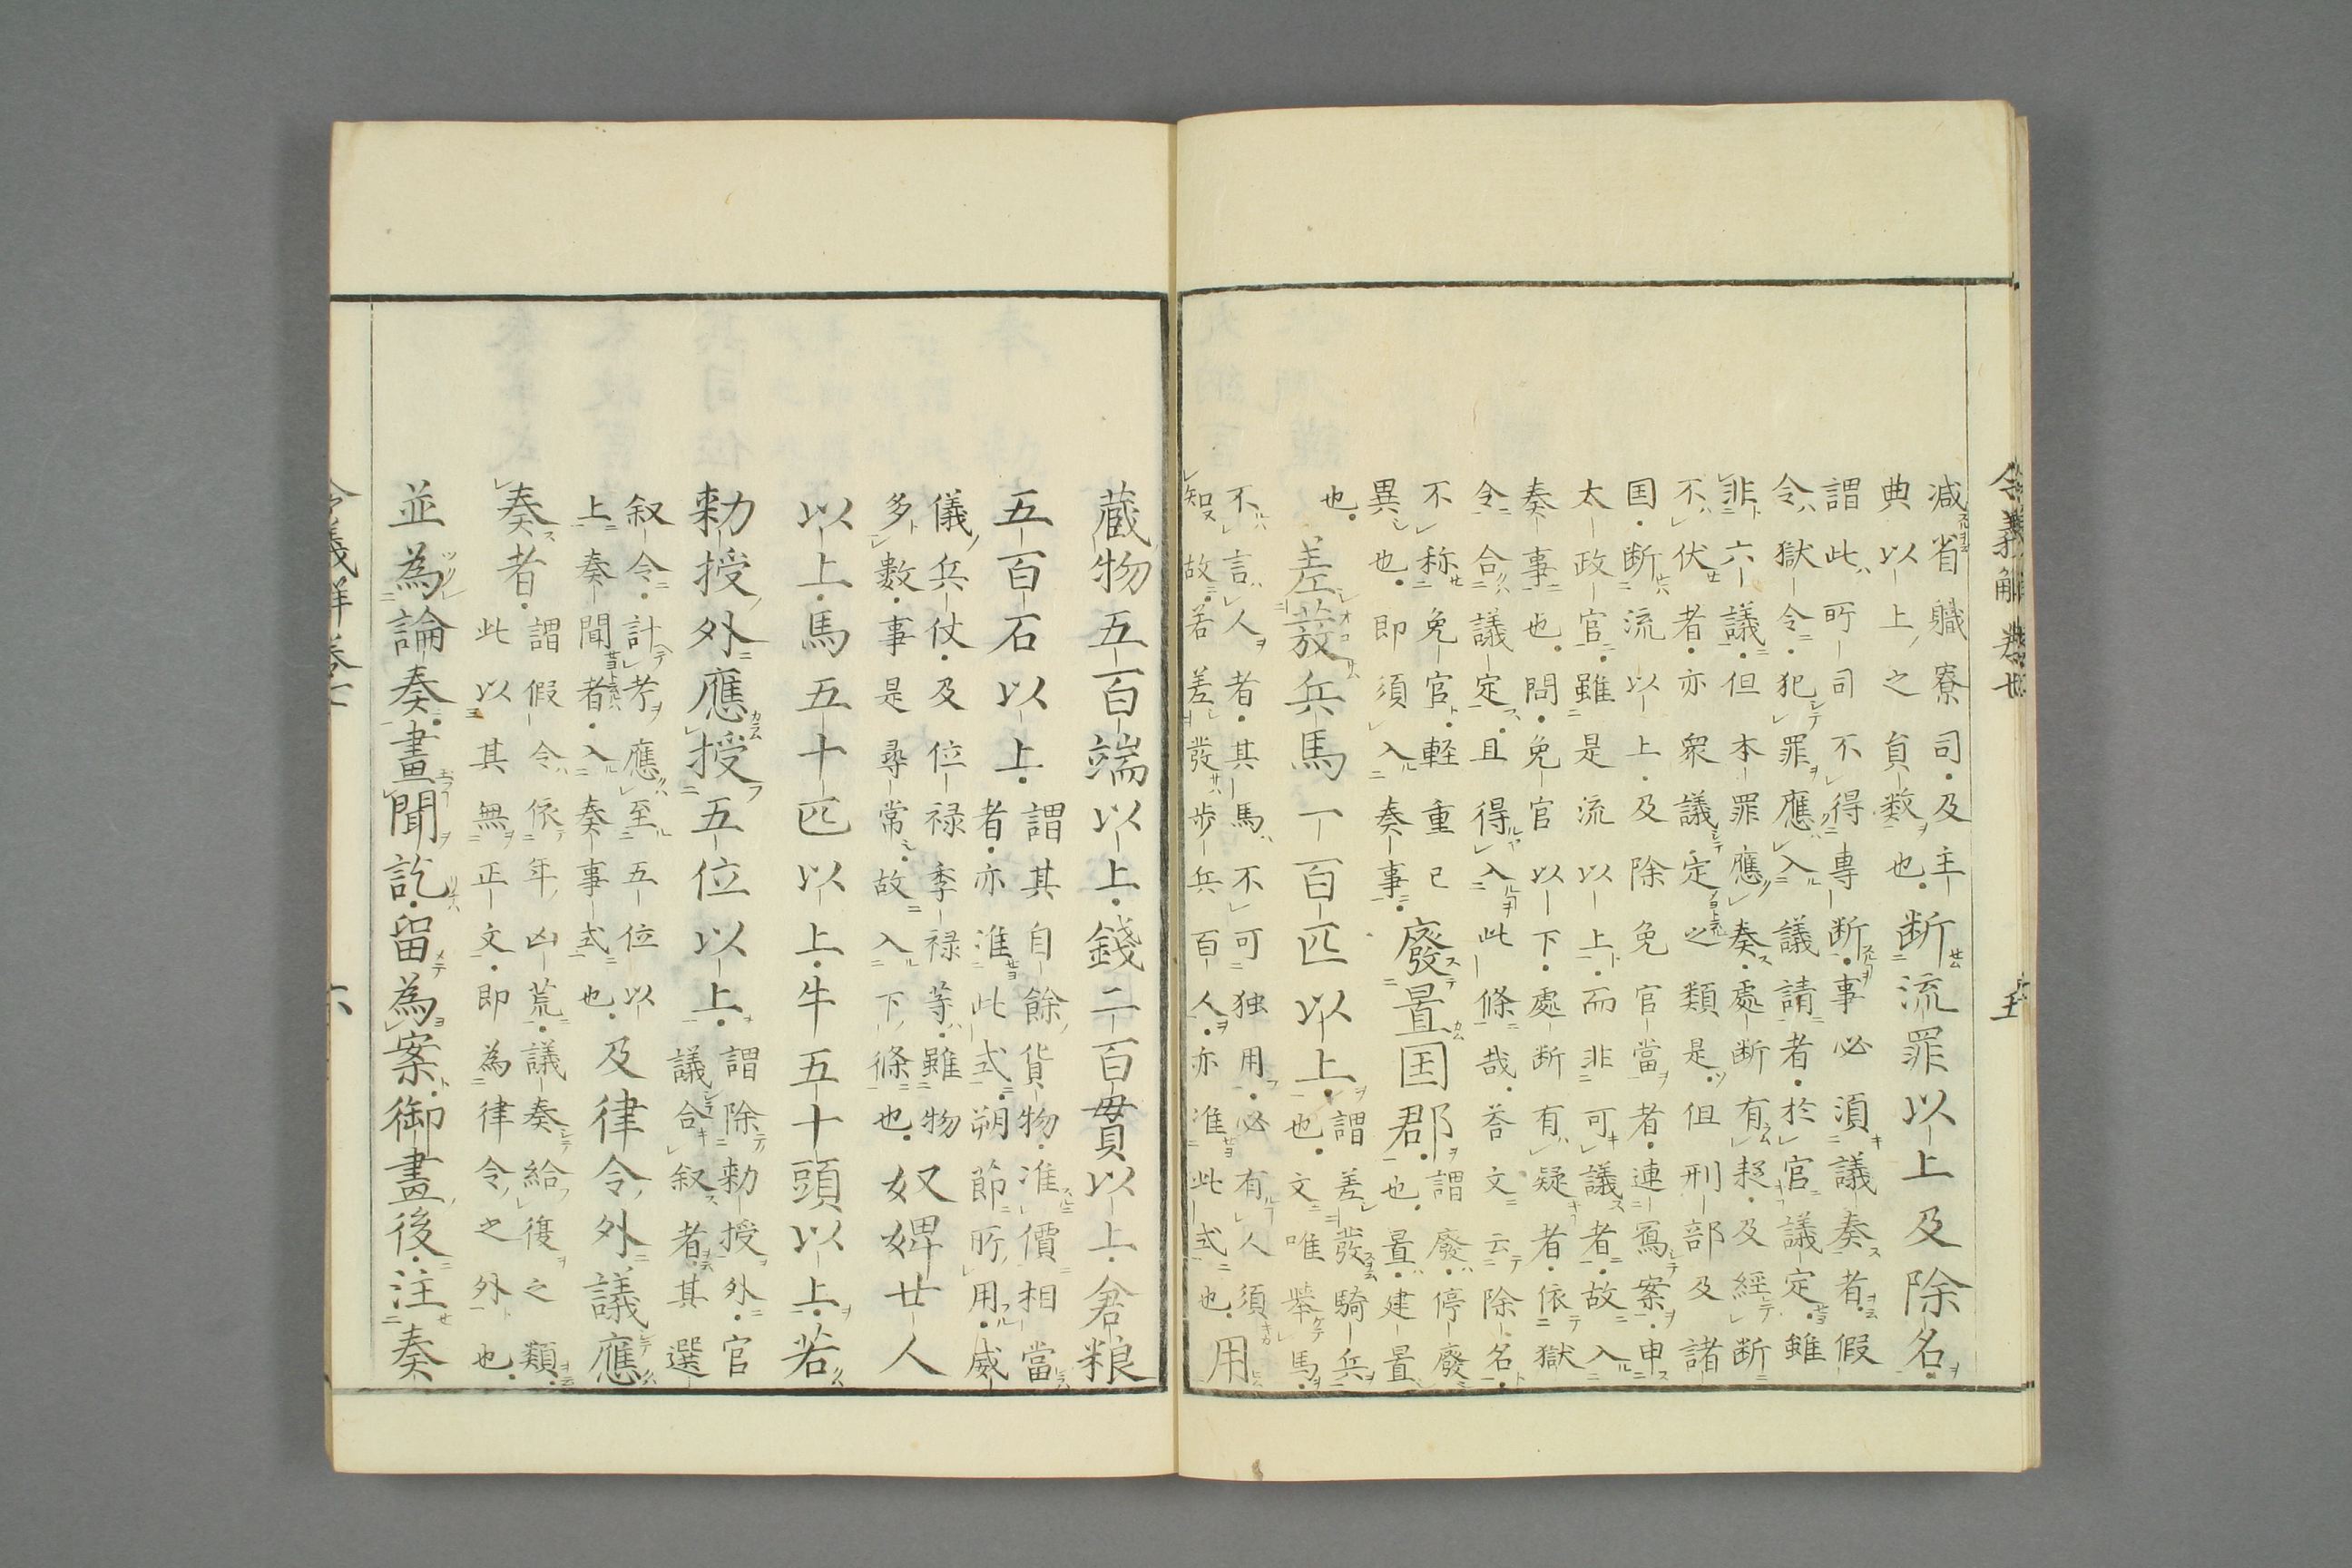 令義解卷七
五
減省職寮司・及主
典以上之員数也・
断流罪以上及除名・
謂此所司不得專断・事必須議奏者・假
令獄令犯罪應入議請者・於官議定・雖
非六議・但本罪應奏・處断有疑・及經断
不伏者・亦衆議定之類是・但刑部及諸
国・断流以上・及除免官當者・連寫案・申
太政官・雖是流以上・而非可議者・故入
奏事也・問・免官以下・處断有疑者・依獄
令合議定・且得入此條哉・荅文云除名・
不称免官・軽重已
異也・即須入奏事・
廢置国郡・
謂廢・停廢
也・置・建置
也・
差發兵馬一百匹以上・
謂差發騎兵
也・文唯舉馬・
不言人者・其馬不可独用・必有人須
知故・若差發歩兵百人・亦准此式也・
用
蔵物五百端以上・錢二百貫以上・倉粮
五百石以上・
謂其自餘貨物・准價相當
者・亦准此式・朔節所用・威
儀兵仗・及位禄季禄等・雖物
多數・事是尋常・故入下條也・
奴婢廿人
以上・馬五十匹以上・牛五十頭以上・若
勅授外應授五位以上・
謂除勅授外・官
議合叙者・其選
叙令・計考應至五位以
上奏聞者・入奏事式也・
及律令外議應
奏者・
謂假令依年凶荒・議奏給復之類・
此以其無正文・即為律令之外也・
並為論奏・畫聞訖・留為案・御畫後・注奏